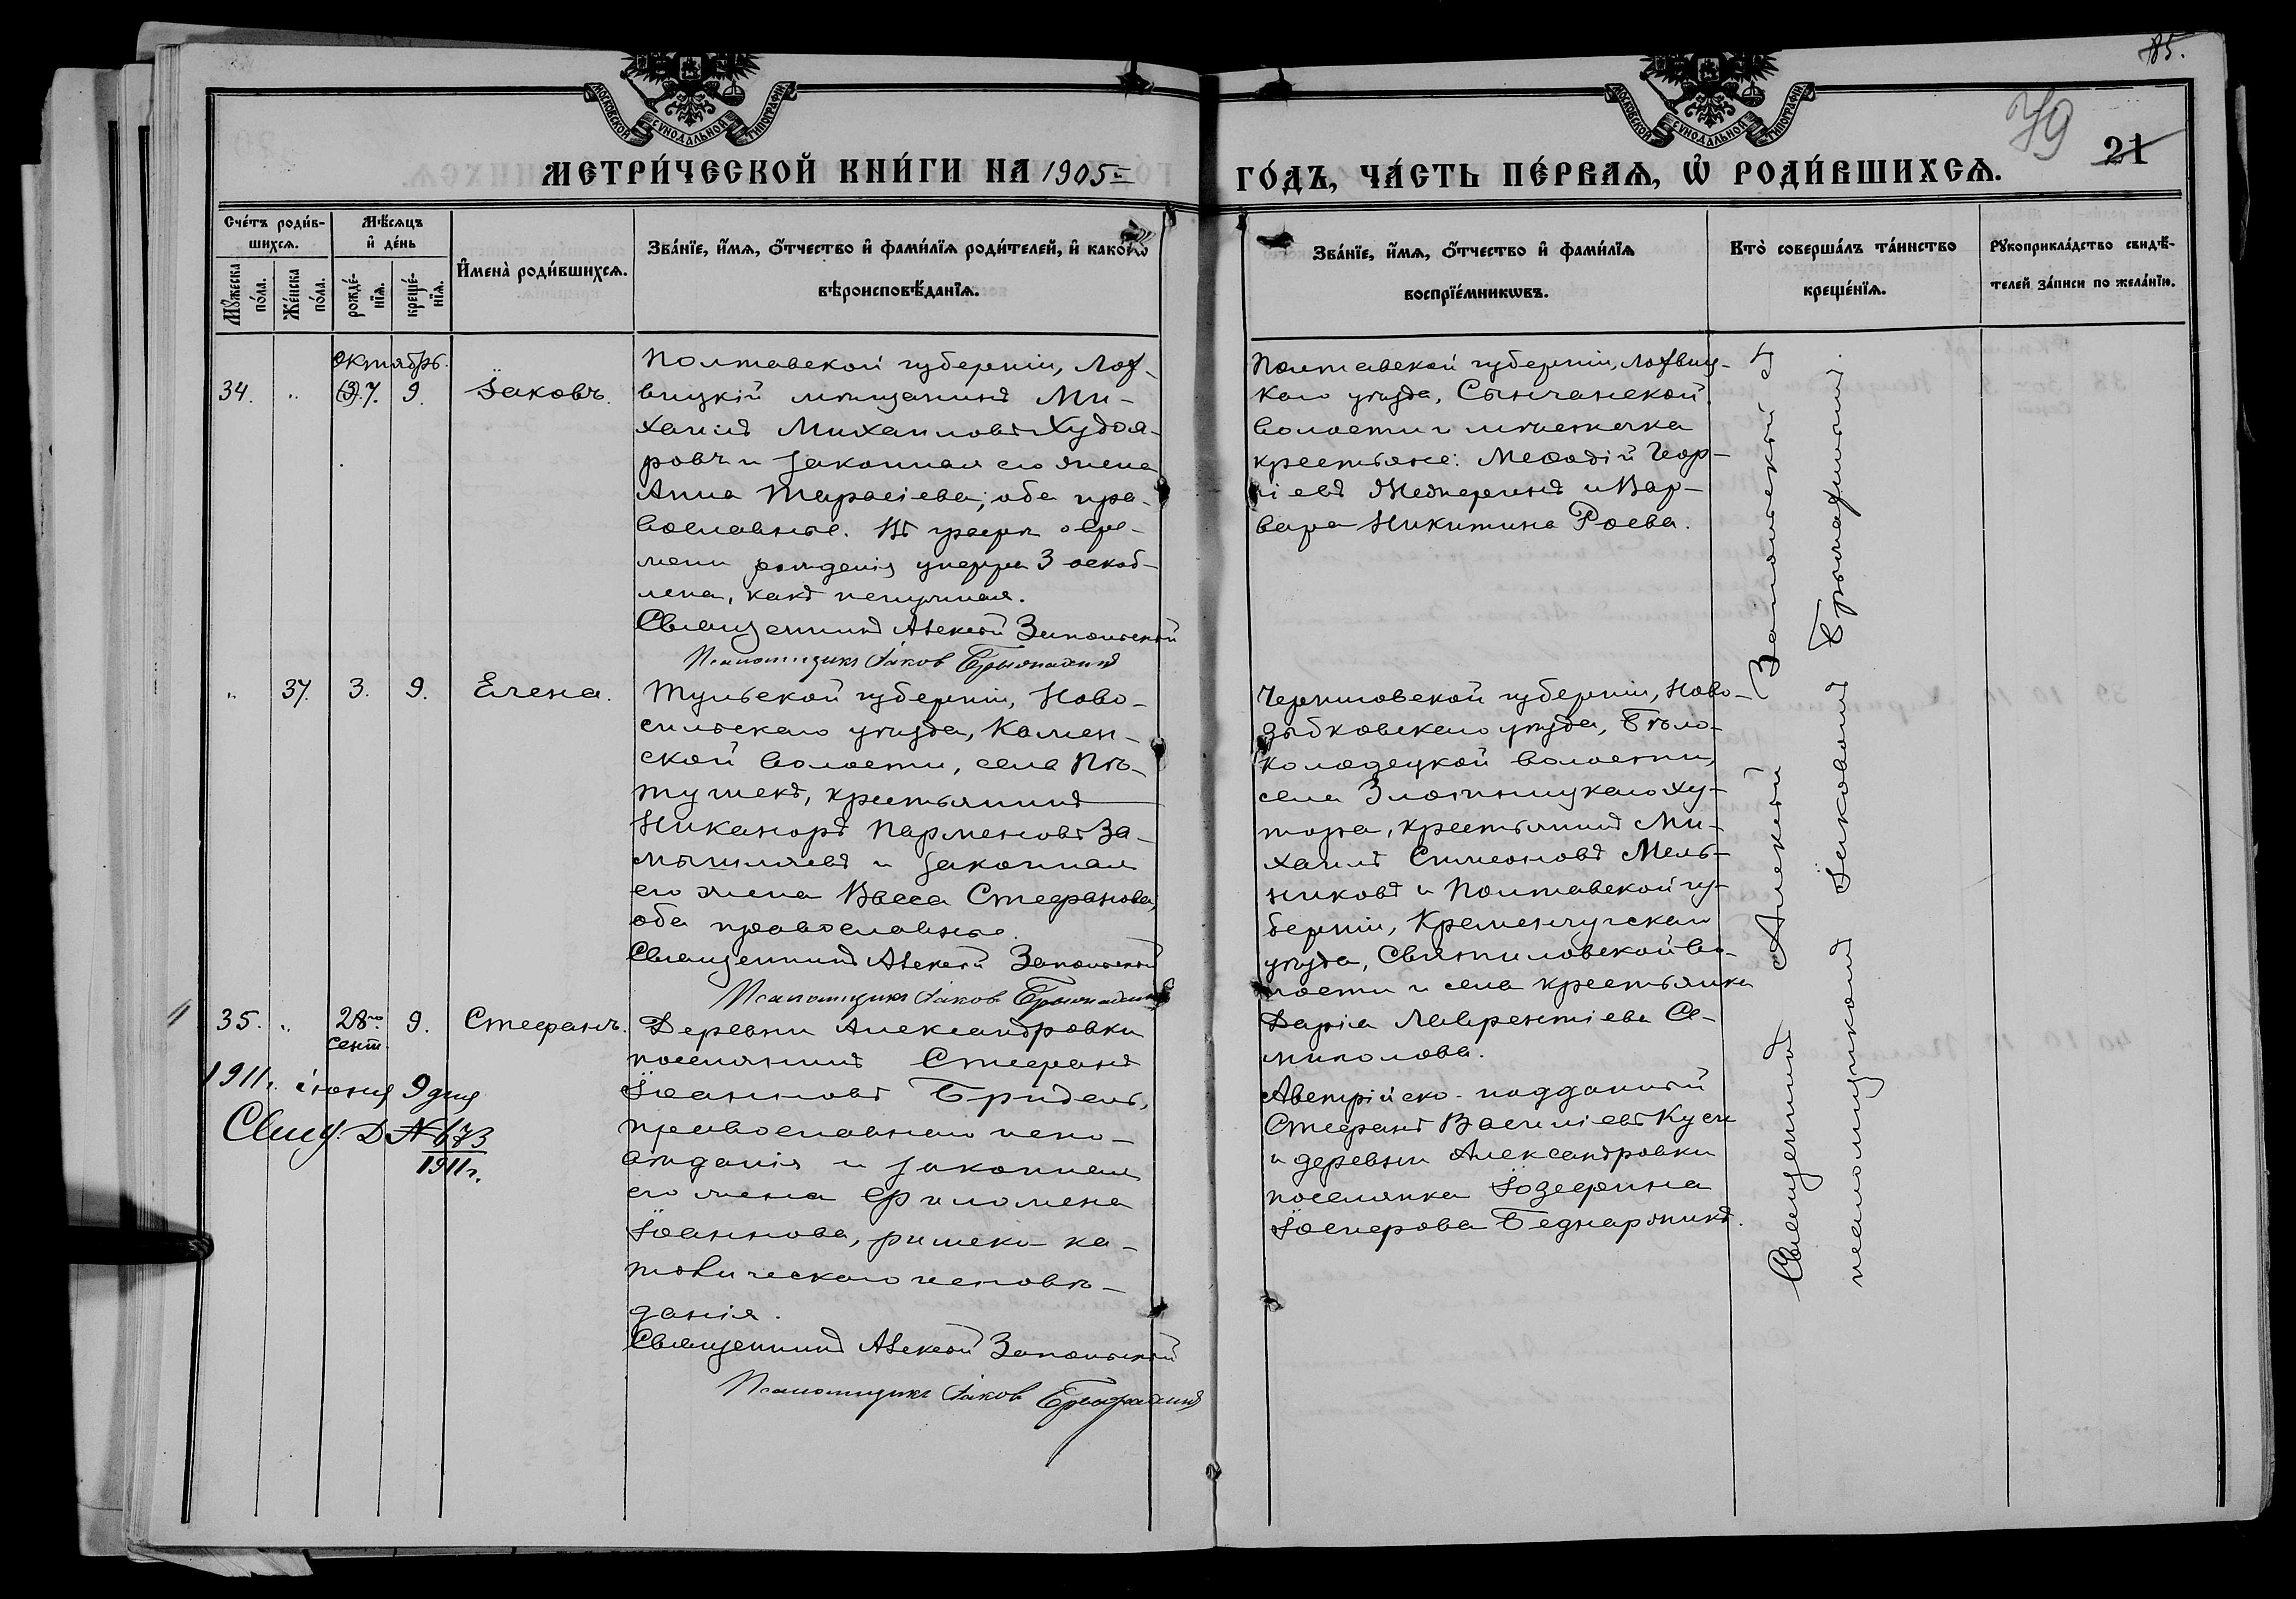 85.
79
21
МОСКОВСКОЙ СѴНОДАЛЬНОЙ ТИПОГРАФІИ
МОСКОВСКОЙ СѴНОДАЛЬНОЙ ТИПОГРАФІИ
МЕТРИ́ЧЕСКОЙ КНИ́ГИ НА 1905й
ГО́ДЪ, ЧА́СТЬ ПЕ́РВАѦ, Ѡ҆ РОДИ́ВШИХСѦ.
Сче́тъ роди́в-
шихсѧ.
Мѣ́сѧцъ
и҆ де́нь
Мꙋ́жеска
по́ла.
Же́нска
по́ла.
рожде́-
нїѧ.
креще́-
нїѧ.
И҆мена̀ роди́вшихсѧ.
Зва́нїе, и҆́мѧ, ѻ҆́тчество и҆ фами́лїѧ роди́телей, и҆ како́гѡ
вѣроисповѣ́данїѧ.
Зва́нїе, и҆́мѧ, ѻ҆́тчество и҆ фами́лїѧ
воспрїе́мникѡвъ.
Кто̀ соверша́лъ та́инство
креще́нїѧ.
Рꙋкоприкла́дство свидѣ́-
телей за́писи по жела́нїю.
октябрь.
34. „ (3) 7. 9. Іаковъ.
Полтавской губерніи, Лох-
вицкій мѣщанинъ Ми-
хаилъ Михаиловъ Худоя-
ровъ и законная его жена
Анна Тарасіева; оба пра-
вославные. Въ графѣ о вре-
мени рожденія цифра 3 оскоб-
лена, какъ ненужная.
Священникъ Алексій Запольскій
Псаломщикъ Іаков
Полтавской губерніи, Лохвиц-
каго уѣзда, Сенчанской
волости и мѣстечка
крестьяне: Меѳодій Геор-
гіевъ и Вар-
вара Никитина Роева.
„ 37. 3. 9. Елена.
Тульской губерніи, Ново-
сильскаго уѣзда, Камен-
ской волости, села Пѣ-
тушекъ, крестьянинъ
Никаноръ Парменовъ За-
мышляевъ и законная
его жена Васса Стефанова,
оба православные.
Священникъ Алексій Запольскій
Псаломщикъ Іаков
Черниговской губерніи, Ново-
зыбковскаго уѣзда, Бѣло-
колодецкой волости,
села Злотницкаго ху-
тора, крестьянинъ Ми-
хаилъ Симеоновъ Мель-
никовъ и Полтавской гу-
берніи, Кременчугскаго
уѣзда, Святиловской во-
лости и села крестьянка
Дарія Лаврентіева Са-
мполова.
35. „ 28го сент. 9. Стефанъ.
1911г. іюня 9 дня
Свид. Д № 673
1911г.
Деревни Александровки
поселянинъ Стефанъ
Іоанновъ Бридель,
православнаго испо-
вѣданія и законная
его жена Филомена
Іоаннова, римско-ка-
толическаго исповѣ-
данія.
Священникъ Алексій Запольскій
Псаломщикъ Іаков
Австрійско-подданный
Стефанъ Василіевъ Куси
и деревни Александровки
поселянка Іозефина
Іосифова Беднаржикъ.
Священникъ Алексій Запольскій и
псаломщикъ Іаковъ